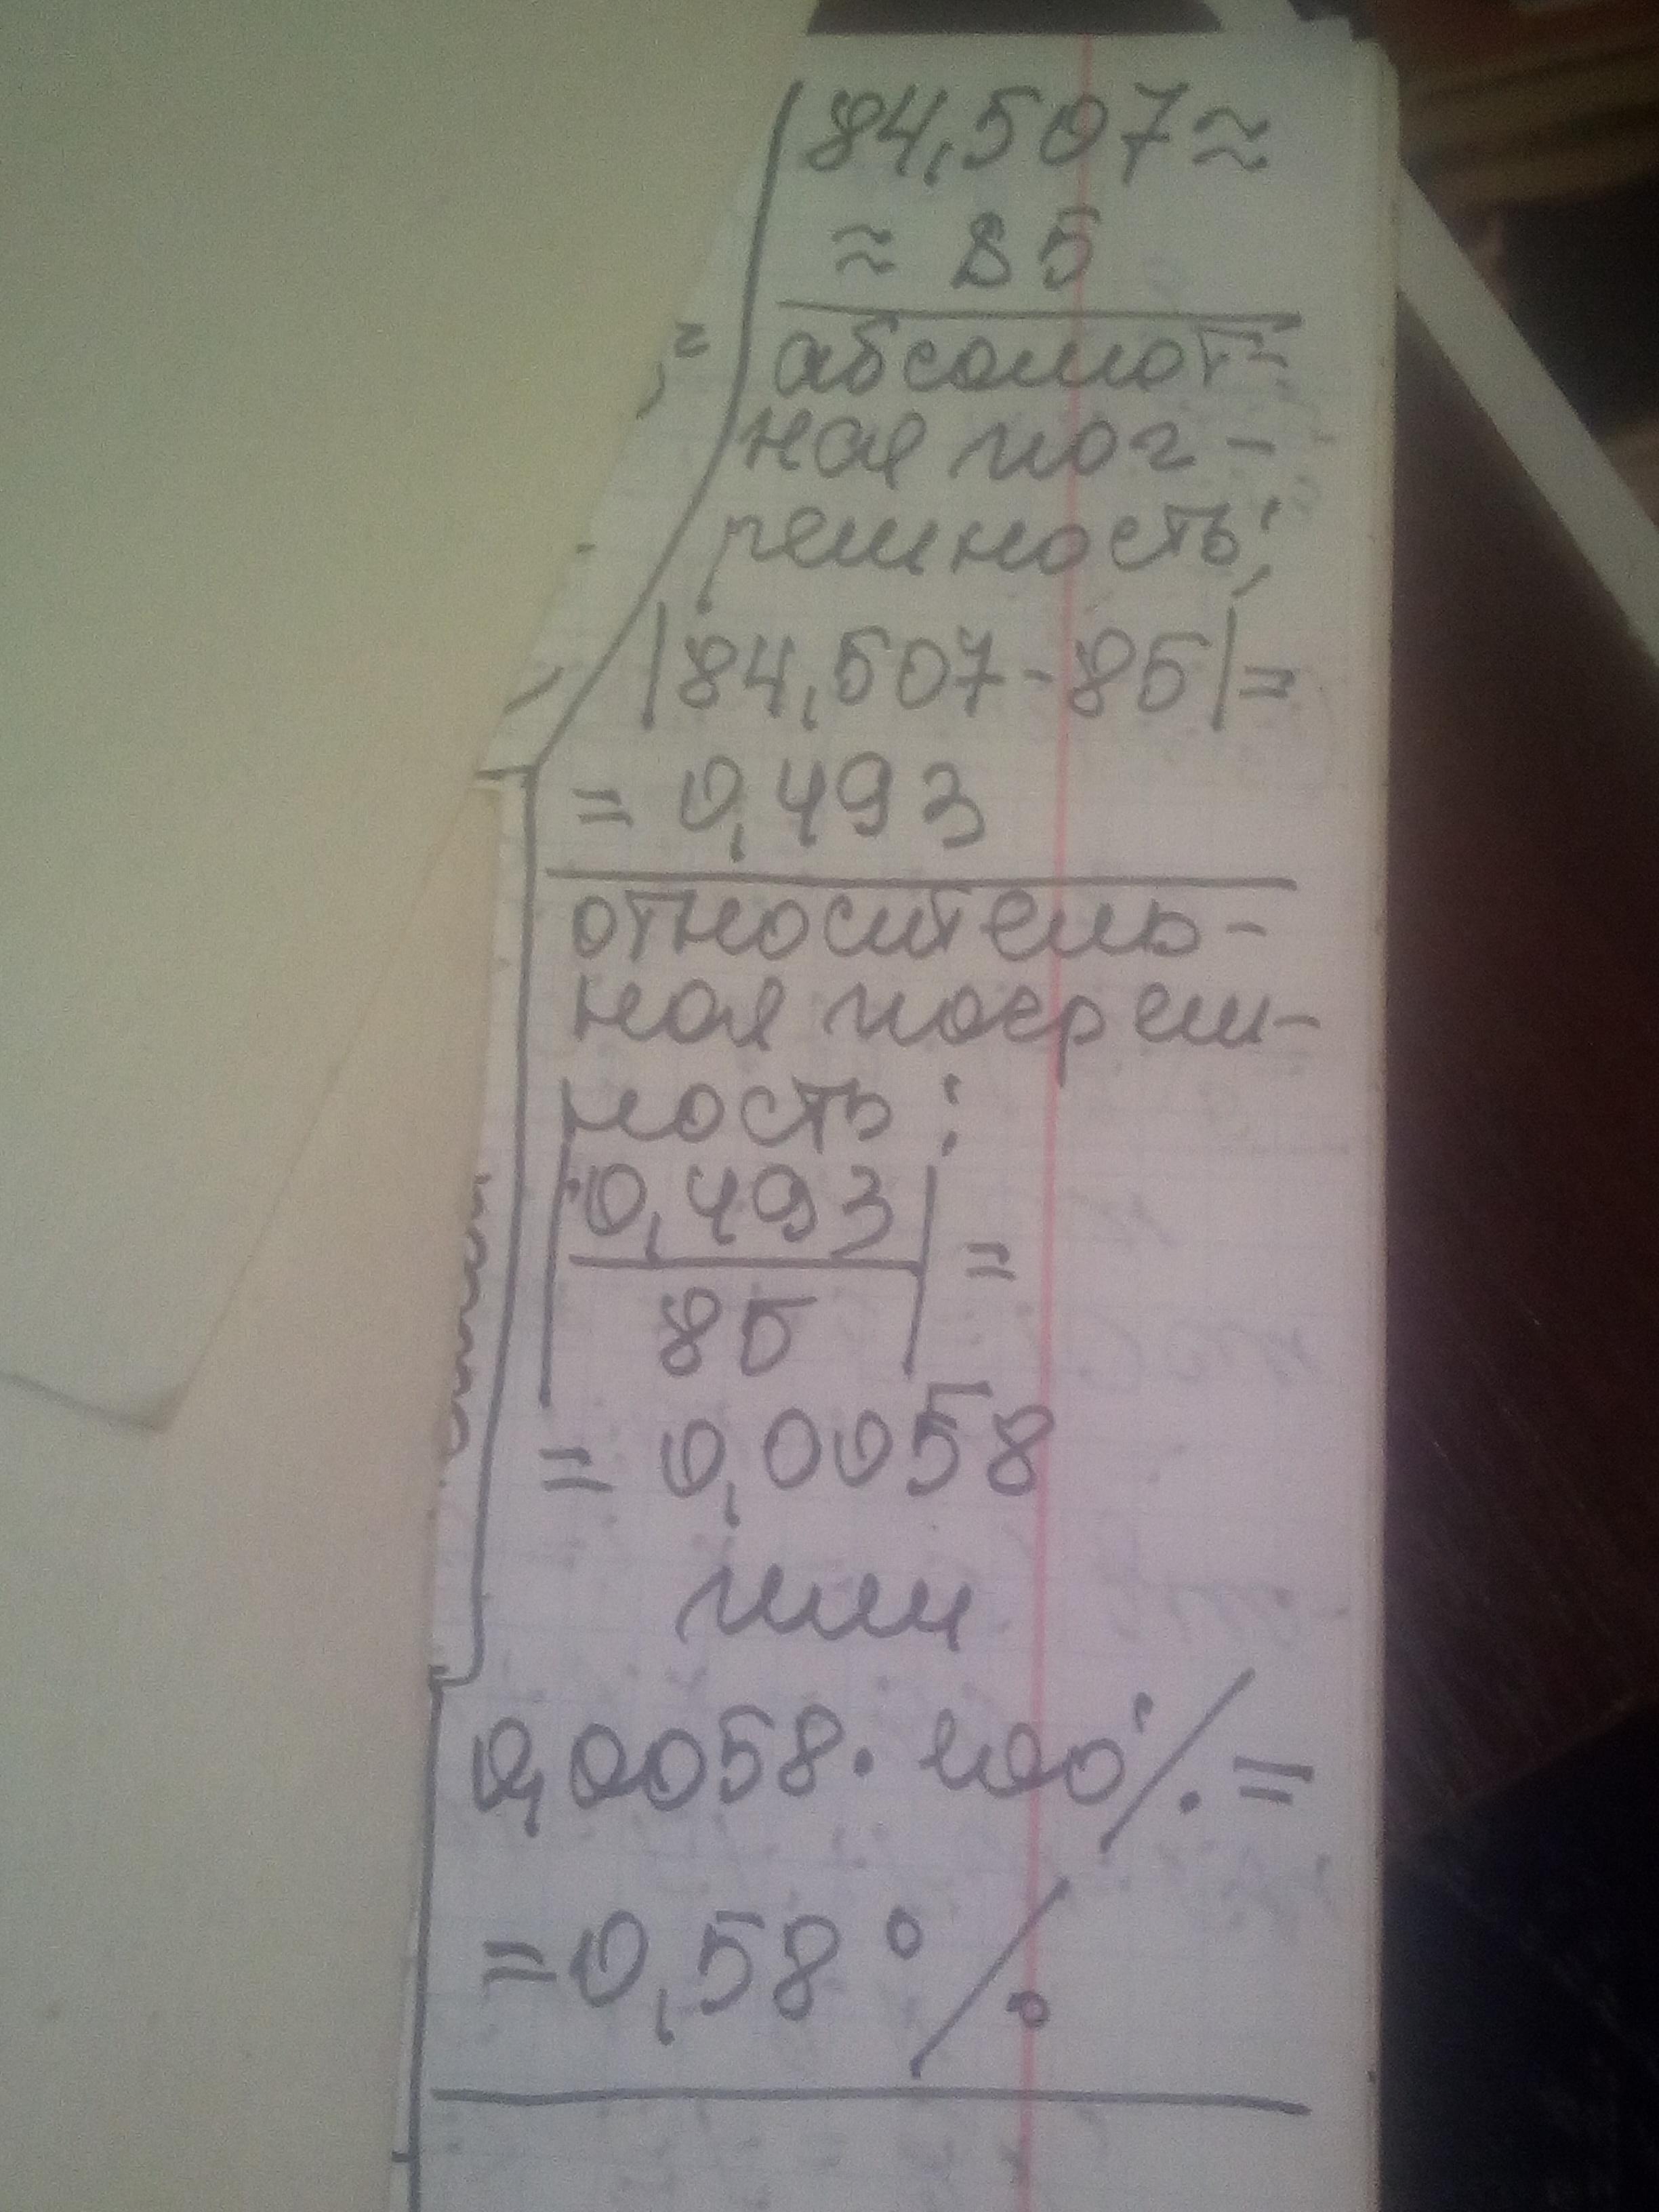 84,507≈
≈ 85
абсолют-
ная пог-
решность:
|84,507-85|=
= 0,493
относитель-
ная погреш-
ность:
|0,493/85| =
= 0,0058
или
0,0058·100%=
=0,58%